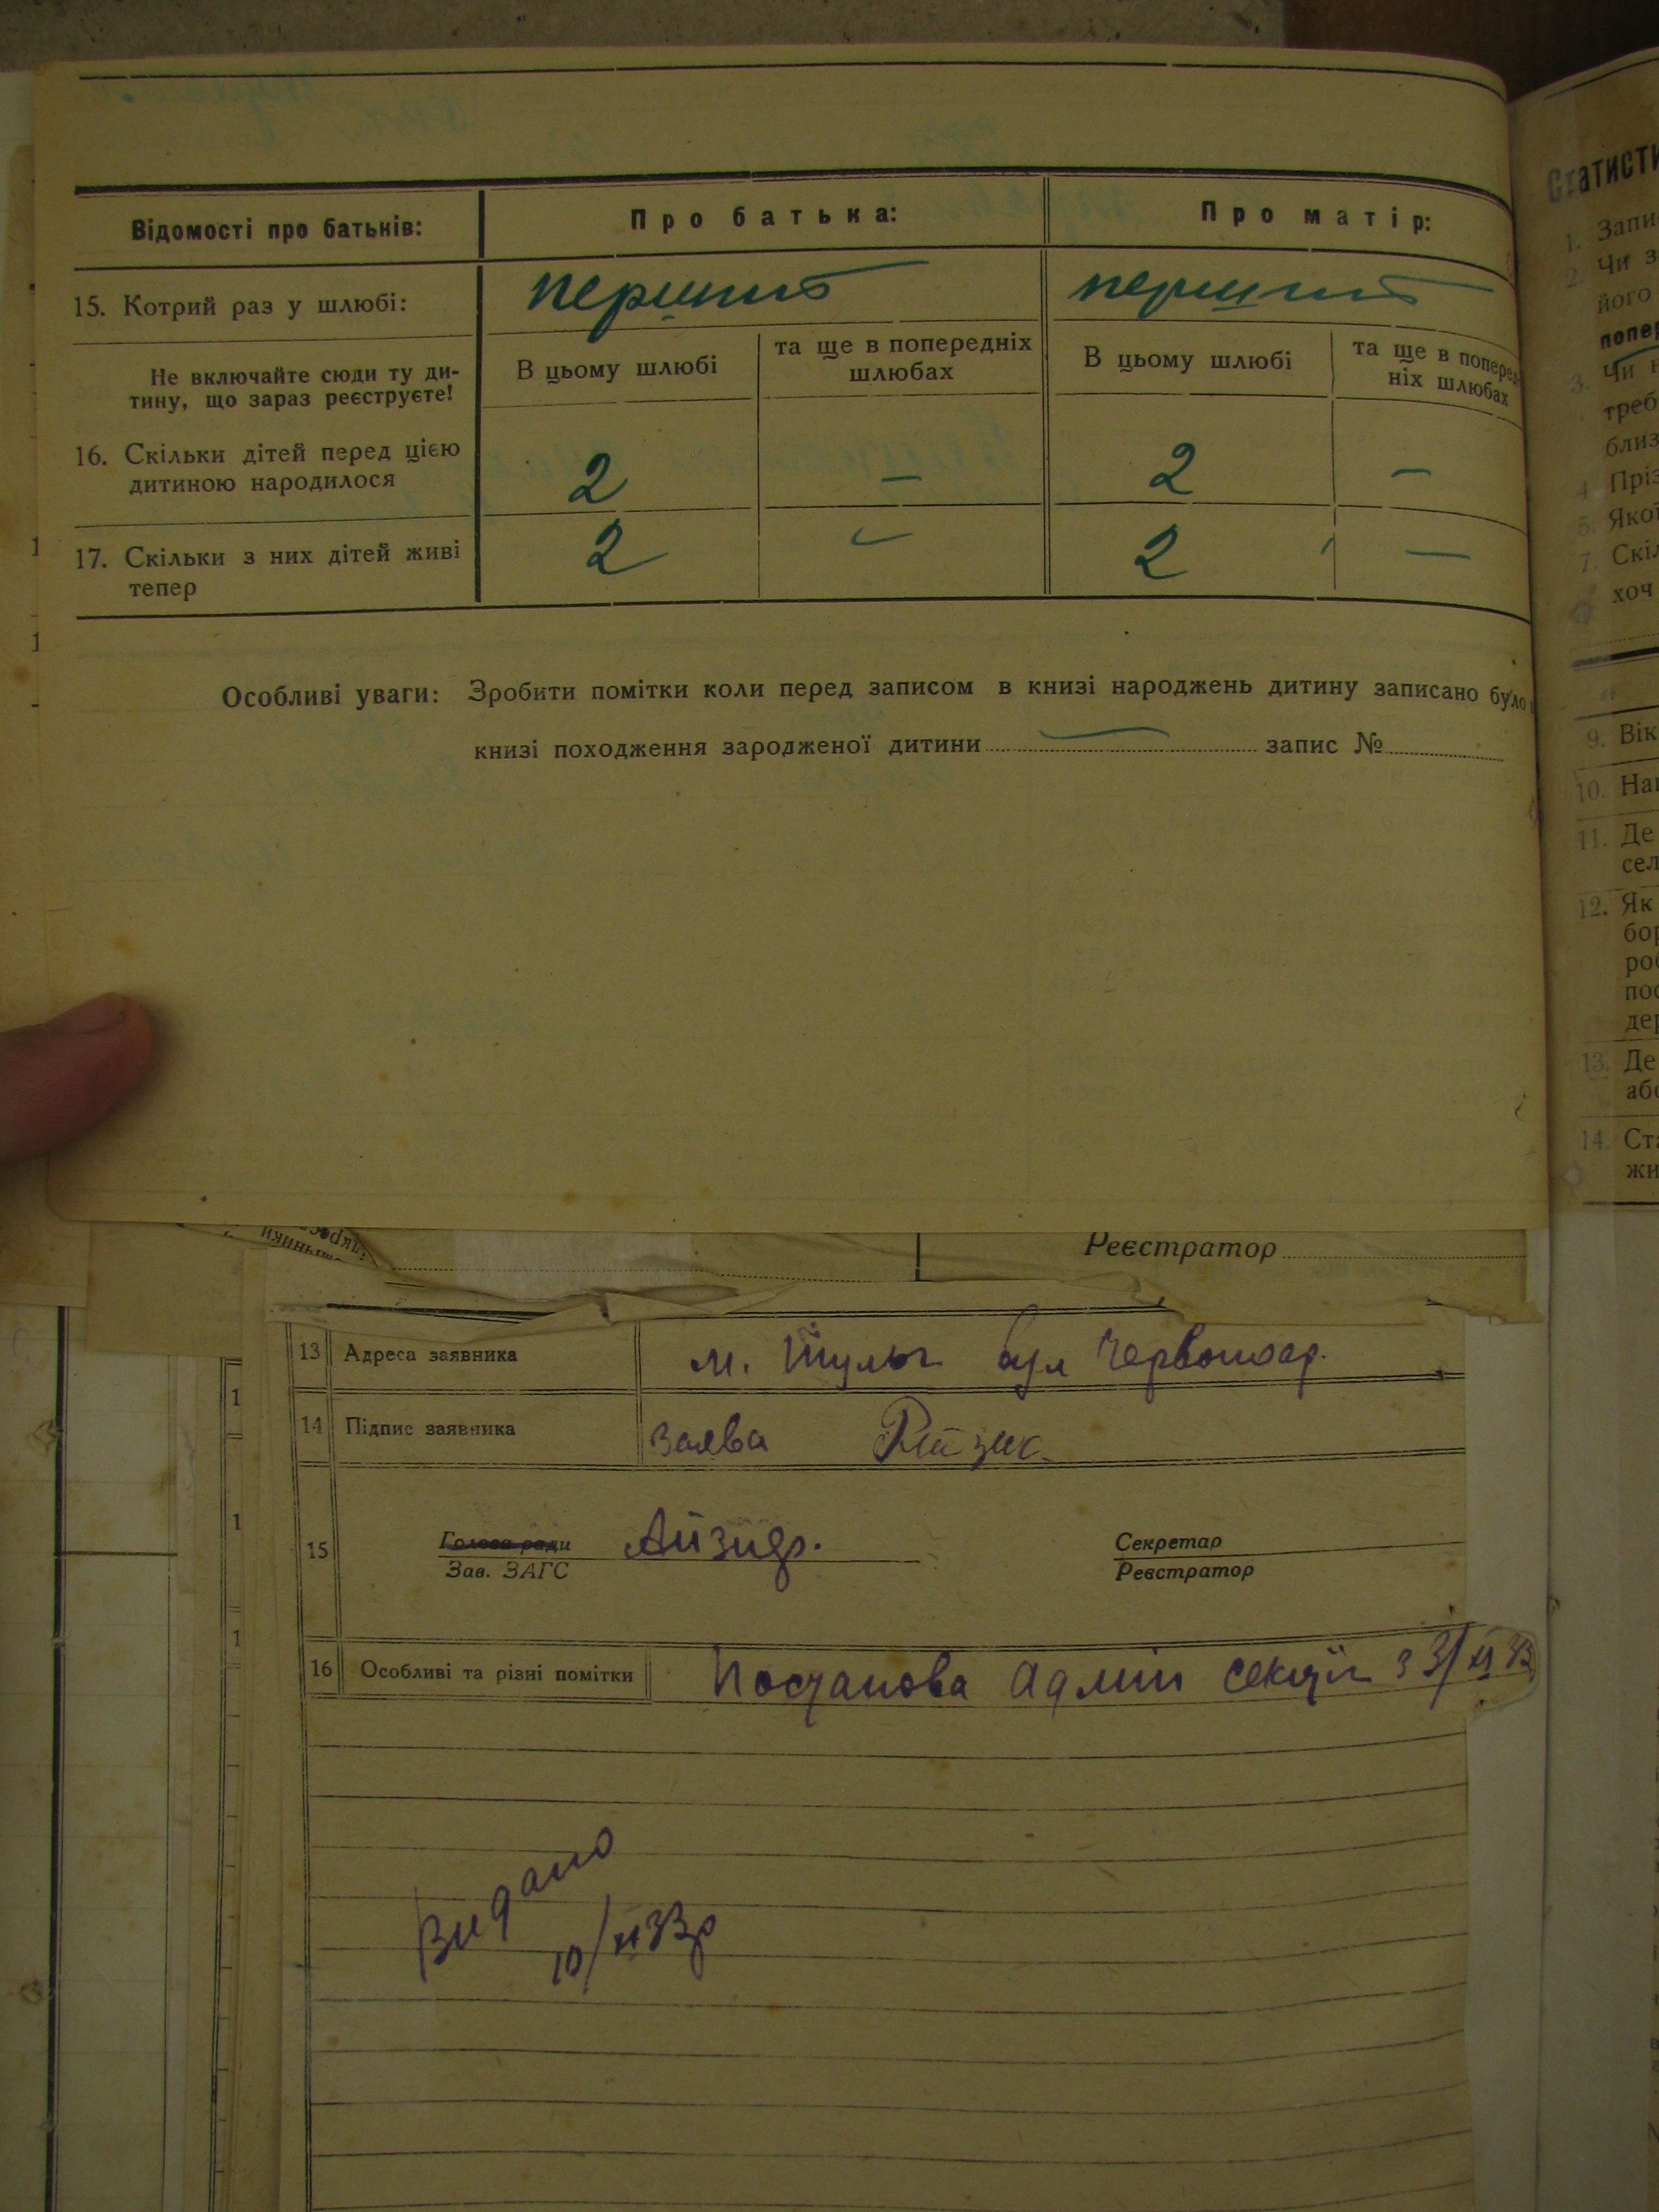 Відомості про батьків:
Про батька:
Про матір:
15. Котрий раз у шлюбі:
перший
перший
Не включайте сюди ту ди-
тину, що зараз реєструєте!
В цьому шлюбі
та ще в попередніх
шлюбах
В цьому шлюбі
та ще в поперед-
ніх шлюбах
16. Скільки дітей перед цією
дитиною народилося
2
—
2
—
17. Скільки з них дітей живі
тепер
2
—
2
—
Особливі уваги: Зробити помітки коли перед записом в книзі народжень дитину записано було
книзі походження зародженої дитини — запис №
Реєстратор
13 Адреса заявника
м.
14 Підпис заявника
заява
15
Голова ради
Зав. ЗАГС
Секретар
Реєстратор
16 Особливі та різні помітки
Постанова Адмін секції з 3/XI 33
Видано
10/XI 33р
Статисти
1. Запи
2. Чи з
його
попер
3. Чи н
треб
близ
4. Пріз
5. Якої
7. Скіл
хоч
9. Вік
10. На
11. Де
сел
12. Як
бор
роб
пос
дер
13. Де
або
14. Ста
жи